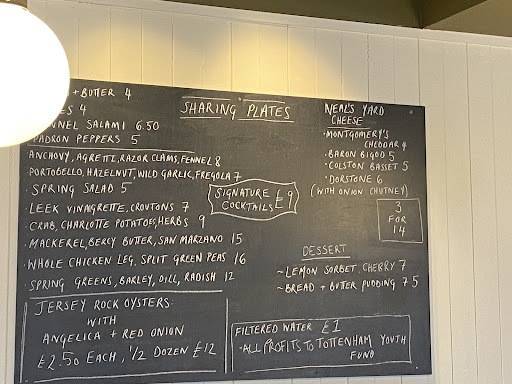 + BUTTER 4
ES 4
NNEL SALAMI 6.50
PADRON PEPPERS 5
SHARING PLATES
ANCHOVY, AGRETTI, RAZOR CLAMS, FENNEL 8
PORTOBELLO, HAZELNUT, WILD GARLIC, FREGOLA 7
· SPRING SALAD 5
· LEEK VINAIGRETTE, CROUTONS 7
· CRAB, CHARLOTTE POTATOES, HERBS 9
· MACKEREL, BERCY BUTTER, SAN MARZANO 15
· WHOLE CHICKEN LEG, SPLIT GREEN PEAS 16
· SPRING GREENS, BARLEY, DILL, RADISH 12
SIGNATURE
COCKTAILS £9
JERSEY ROCK OYSTERS:
WITH
ANGELICA + RED ONION
£2.50 EACH, 1/2 DOZEN £12
NEAL'S YARD
CHEESE
· MONTGOMERY'S
CHEDDAR 4
· BARON BIGOD 5
· COLSTON BASSET 5
· DORSTONE 6
(WITH ONION CHUTNEY)
3
FOR
14
DESSERT
~ LEMON SORBET, CHERRY 7
~ BREAD + BUTTER PUDDING 7.5
FILTERED WATER £1
· ALL PROFITS TO TOTTENHAM YOUTH
FUND